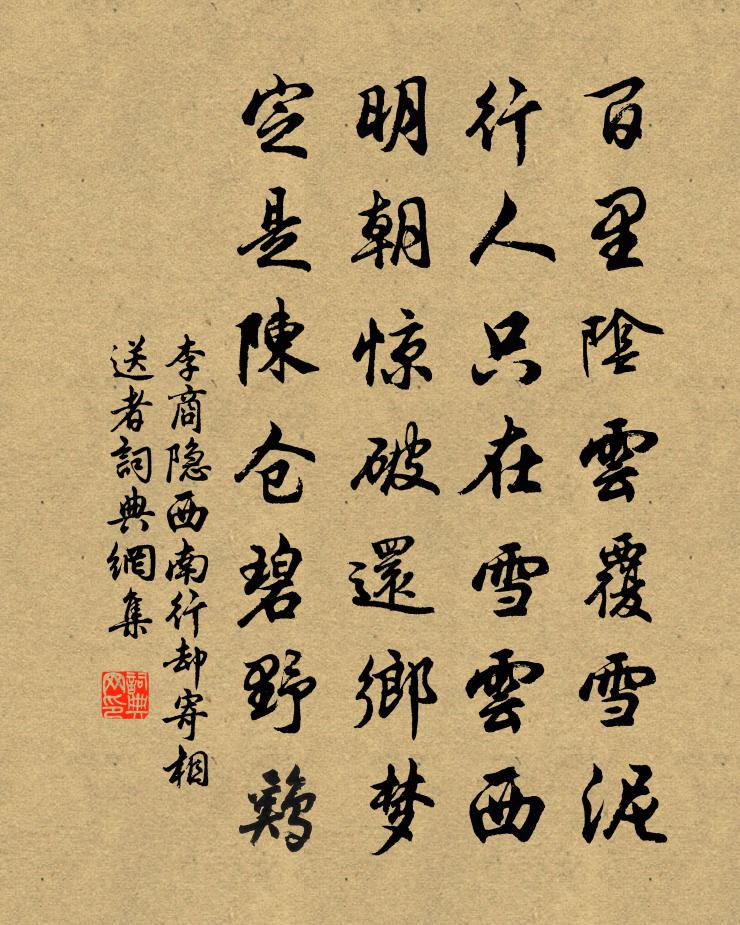 百里陰雲覆雪泥
行人只在雪雲西
明朝惊破還鄉梦
定是陳仓碧野鷄
李商隐西南行却寄相
送者詞典網集
詞典
网印